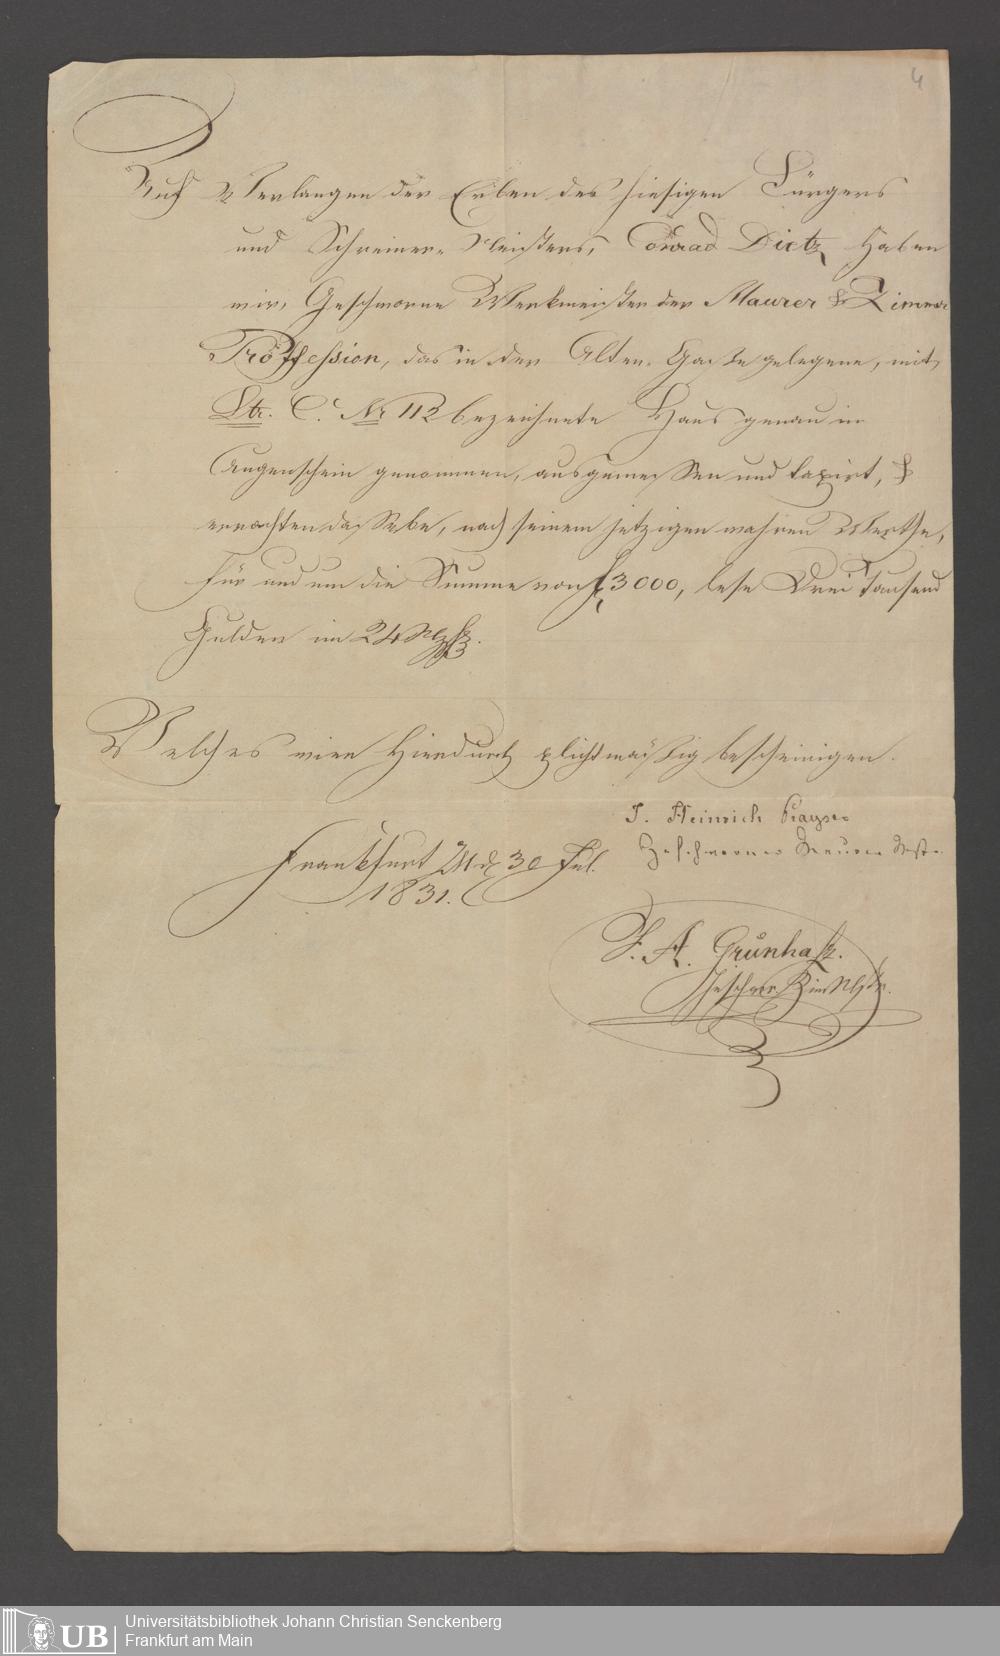 4
Auf Verlangen der Erben des hiesigen Bürgers
und Schreiner-Meisters, Conrad Dietz, haben
wir, Geschworne Werkmeister der Maurer & Zimmer
Proffession, das in der Alten-Gasse gelegene, mit
Ltr. C. Nr 112 bezeichnete Haus genau in
Augenschein genommen, ausgemessen und taxirt, &
erachten dasselbe, nach seinem jetzigen wahren Werthe,
für und um die Summe von f 3000, lese Drei Tausend
Gulden im 24
Welches wir hierdurch plichtmäßig bescheinigen.
J. Heinrich Kayser
Geschworner Maurer Mstr.
Frankfurt 30 Jul.
1831.
F. A. Grünhasz.
Geschwor. Zim Mstr.
UB
Universitätsbibliothek Johann Christian Senckenberg
Frankfurt am Main